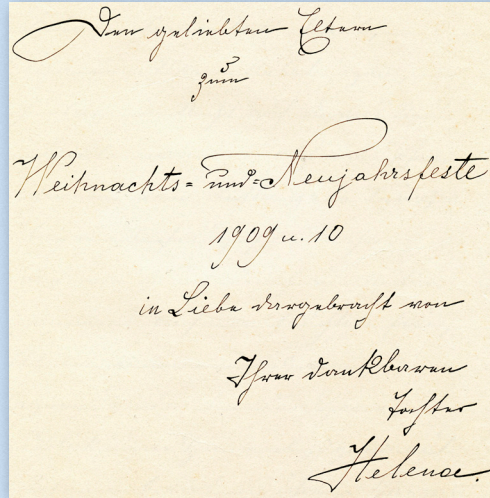 Den geliebten Eltern
zum
Weihnachts= und= Neujahrsfeste
1909 u. 10
in Liebe dargebracht von
Ihrer dankbaren
Tochter
Helene.